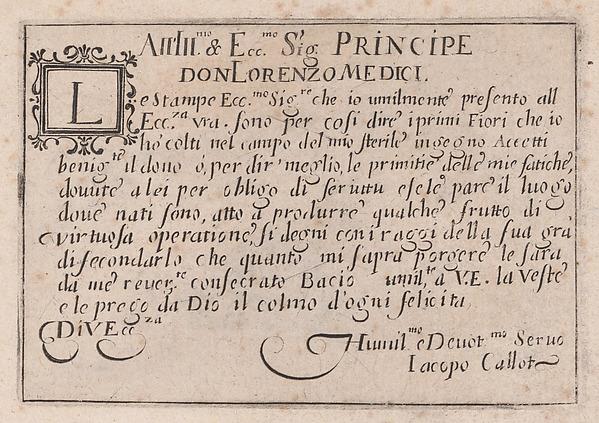 All Ill.mo & Ecc.mo Sig. PRINCIPE
DON LORENZO MEDICI.
Le Stampe Ecc.mo Sig.re che io umilmente presento all
Ecc.za vra. sono per cosi dire i primi Fiori che io
ho colti nel campo del mio sterile ingegno Accetti
benig.te il dono ó, per dir' meglio, le primitie delle mie fatiche,
dovute a lei per obligo di seruitu e se le pare il luogo
dove nati sono, atto a produrre qualche frutto di
virtuosa operatione, si degni con i raggi della sua gra
di fecondarlo che quanto mi sapra porgere le sara
da me reven.te consecrato Bacio umil.te a V.E. la veste
e le prego da Dio il colmo d'ogni felicita,
Di V Ecc.za
Humil.mo e Devot.mo Servo
Iacopo Callot